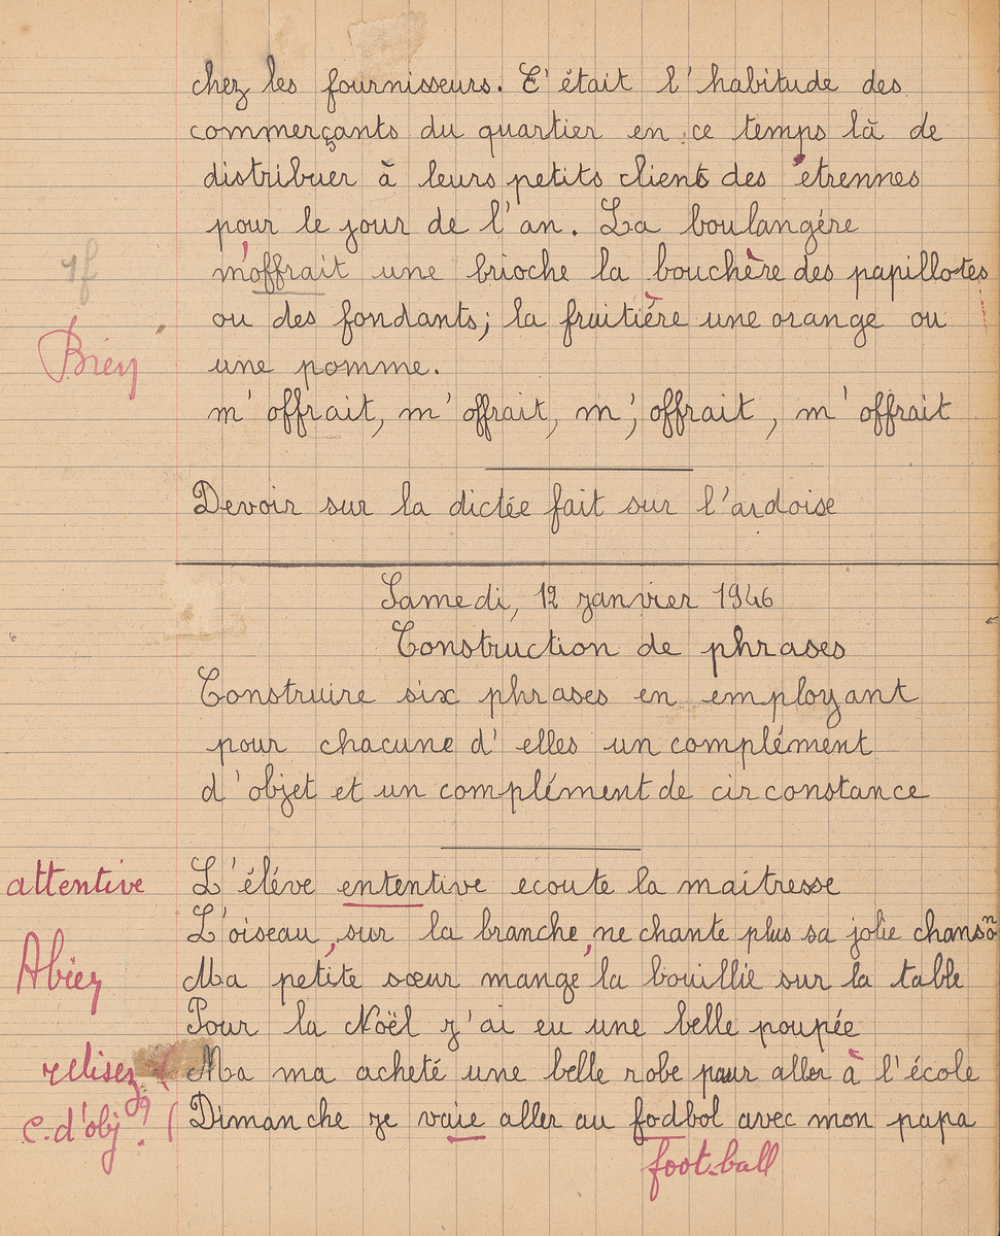 chez les fournisseurs. C'était l'habitude des
commerçants du quartier en ce temps là de
distribuer à leurs petits clients des étrennes
pour le jour de l'an. La boulangére
1f
m'offrait une brioche la bouchère des papillotes
Bien
ou des fondants; la fruitière une orange ou
une pomme.
m'offrait, m'offrait, m'offrait, m'offrait
Devoir sur la dictée fait sur l'ardoise
Samedi, 12 janvier 1946
Construction de phrases
Construire six phrases en employant
pour chacune d'elles un complément
d'objet et un complément de circonstance
attentive
L'éléve ententive ecoute la maitresse
L'oiseau, sur la branche, ne chante plus sa jolie chanson
ABien
Ma petite sœur mange la bouillie sur la table
Pour la Noël j'ai eu une belle poupée
relisez
Ma ma acheté une belle robe pour aller à l'école
c. d'obj ?
Dimanche je vaie aller au fodbol avec mon papa
foot-ball